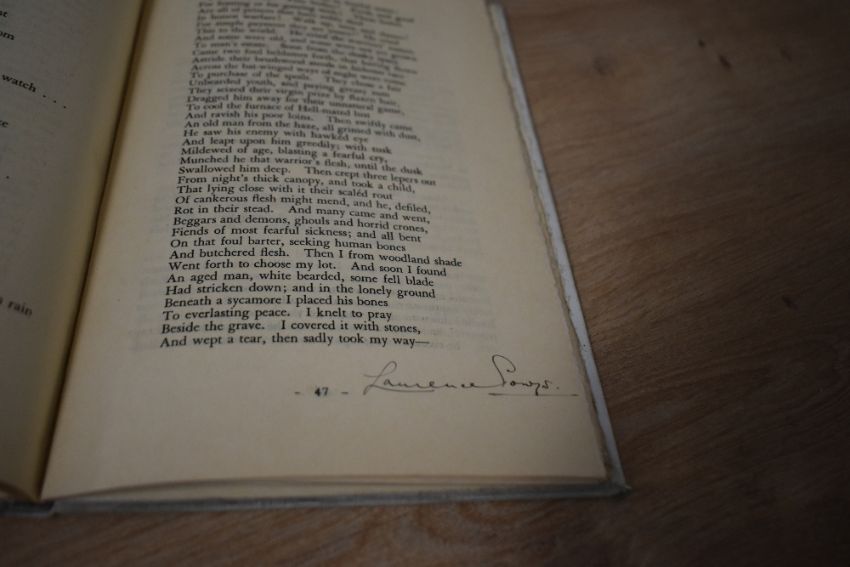 watch . . . .
rain
For simple payment
This to the world. He
And some were old, and some were
To man's estate. Soon from the
Came two foul beldames forth, that
Astride their
Across the bat-winged ways of night were
To purchase of the spoils. They chose a fair
Unbearded youth, and paying grease
They seized their virgin prize by flaxen hair,
Dragged him away for their unnatural game,
To cool the furnace of Hell-mated lust
And ravish his poor loins. Then swiftly came
An old man from the haze, all grimed with dust,
He saw his enemy with hawkéd eye
And leapt upon him greedily; with tusk
Mildewed of age, blasting a fearful cry,
Munched he that warrior's flesh, until the dusk
Swallowed him deep. Then crept three lepers out
From night's thick canopy, and took a child,
That lying close with it their scaléd rout
Of cankerous flesh might mend, and he, defiled,
Rot in their stead. And many came and went,
Beggars and demons, ghouls and horrid crones,
Fiends of most fearful sickness; and all bent
On that foul barter, seeking human bones
And butchered flesh. Then I from woodland shade
Went forth to choose my lot. And soon I found
An aged man, white bearded, some fell blade
Had stricken down; and in the lonely ground
Beneath a sycamore I placed his bones
To everlasting peace. I knelt to pray
Beside the grave. I covered it with stones,
And wept a tear, then sadly took my way—
- 47 -
Laurence Powys.